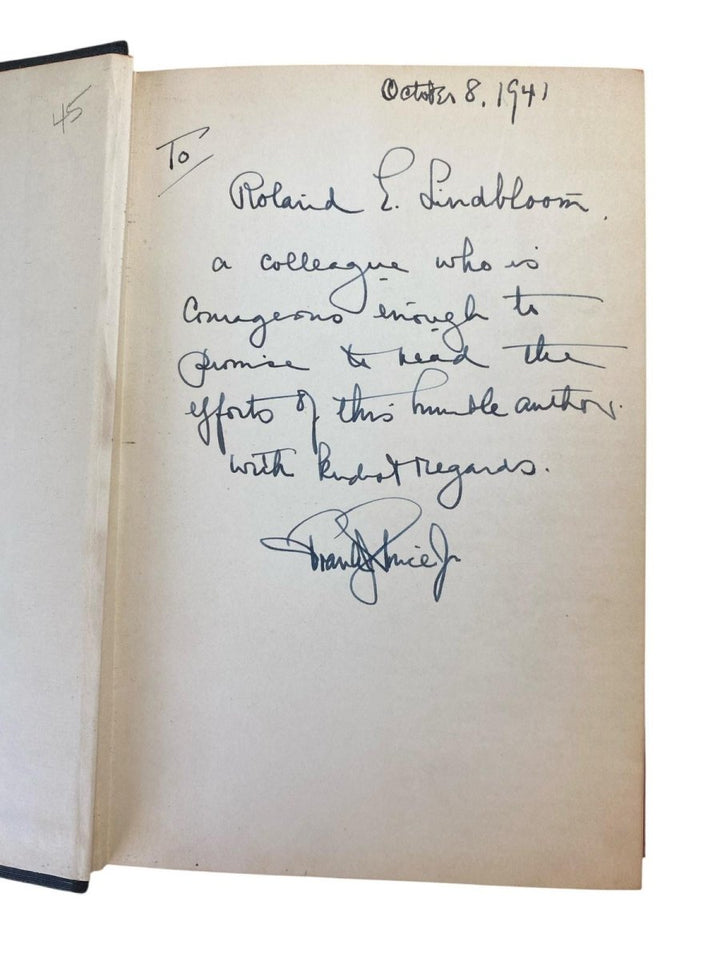 45
October 8, 1941
To
Roland E. Lindbloom.
a colleague who is
Courageous enough to
promise to read the
efforts of this humble author.
with kindest regards.
Frank J Price Jr